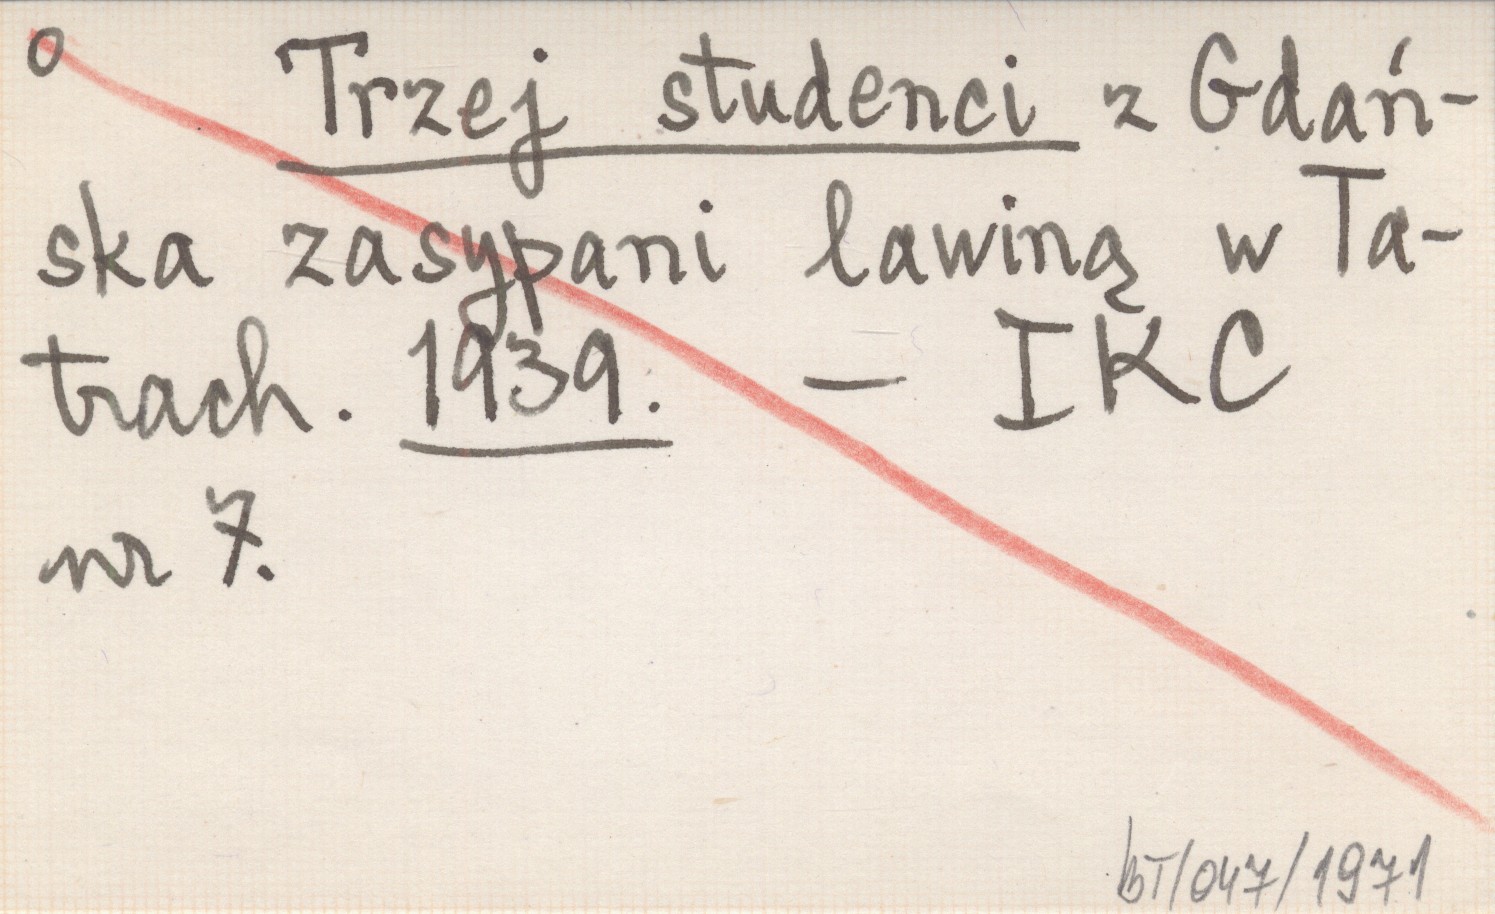 o Trzej studenci z Gdań-
ska zasypani lawiną w Ta-
trach. 1939. — IKC
nr 7.
bT/047/1971